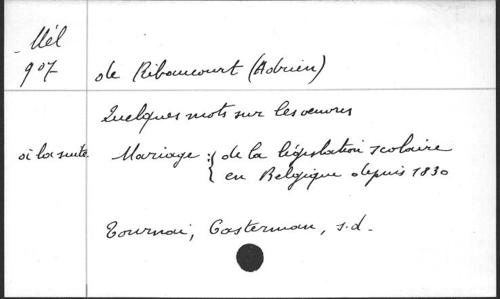 Mél
907
de Ribaucourt (Adrien)
Quelques mots sur les oeuvres
à la suite. Mariage : { de la législation scolaire
en Belgique depuis 1830
Tournai, Casterman, s.d.